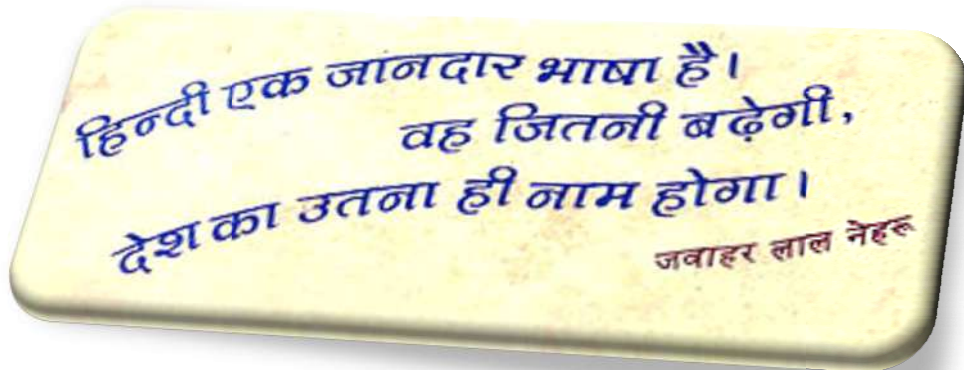 हिन्दी एक जानदार भाषा है।
वह जितनी बढ़ेगी,
देश का उतना ही नाम होगा।
जवाहर लाल नेहरू